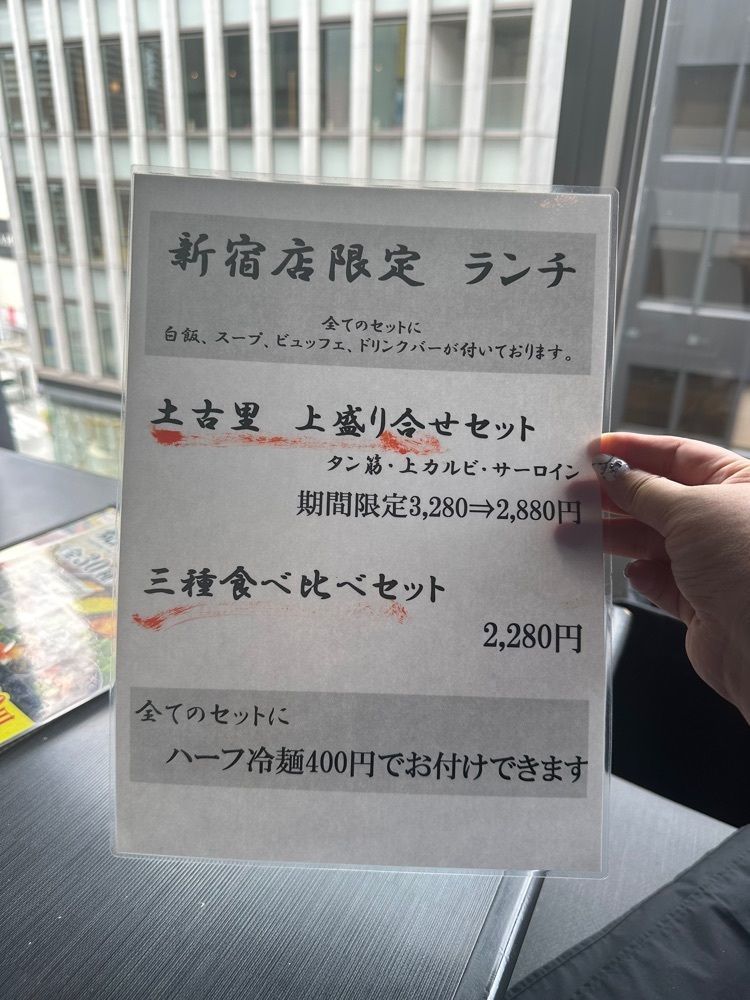 新宿店限定 ランチ
全てのセットに
白飯、スープ、ビュッフェ、ドリンクバーが付いております。
土古里 上盛り合せセット
タン筋・上カルビ・サーロイン
期間限定3,280⇒2,880円
三種食べ比べセット
2,280円
全てのセットに
ハーフ冷麺400円でお付けできます